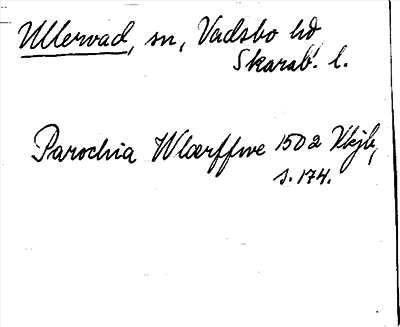 Ullervad, sn, Vadsbo hd
Skarab. l.
Parochia Wlærffwe 1502 Vkjb,
s. 174.